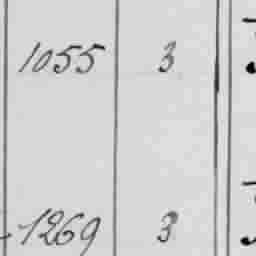 1055 3
1269 3